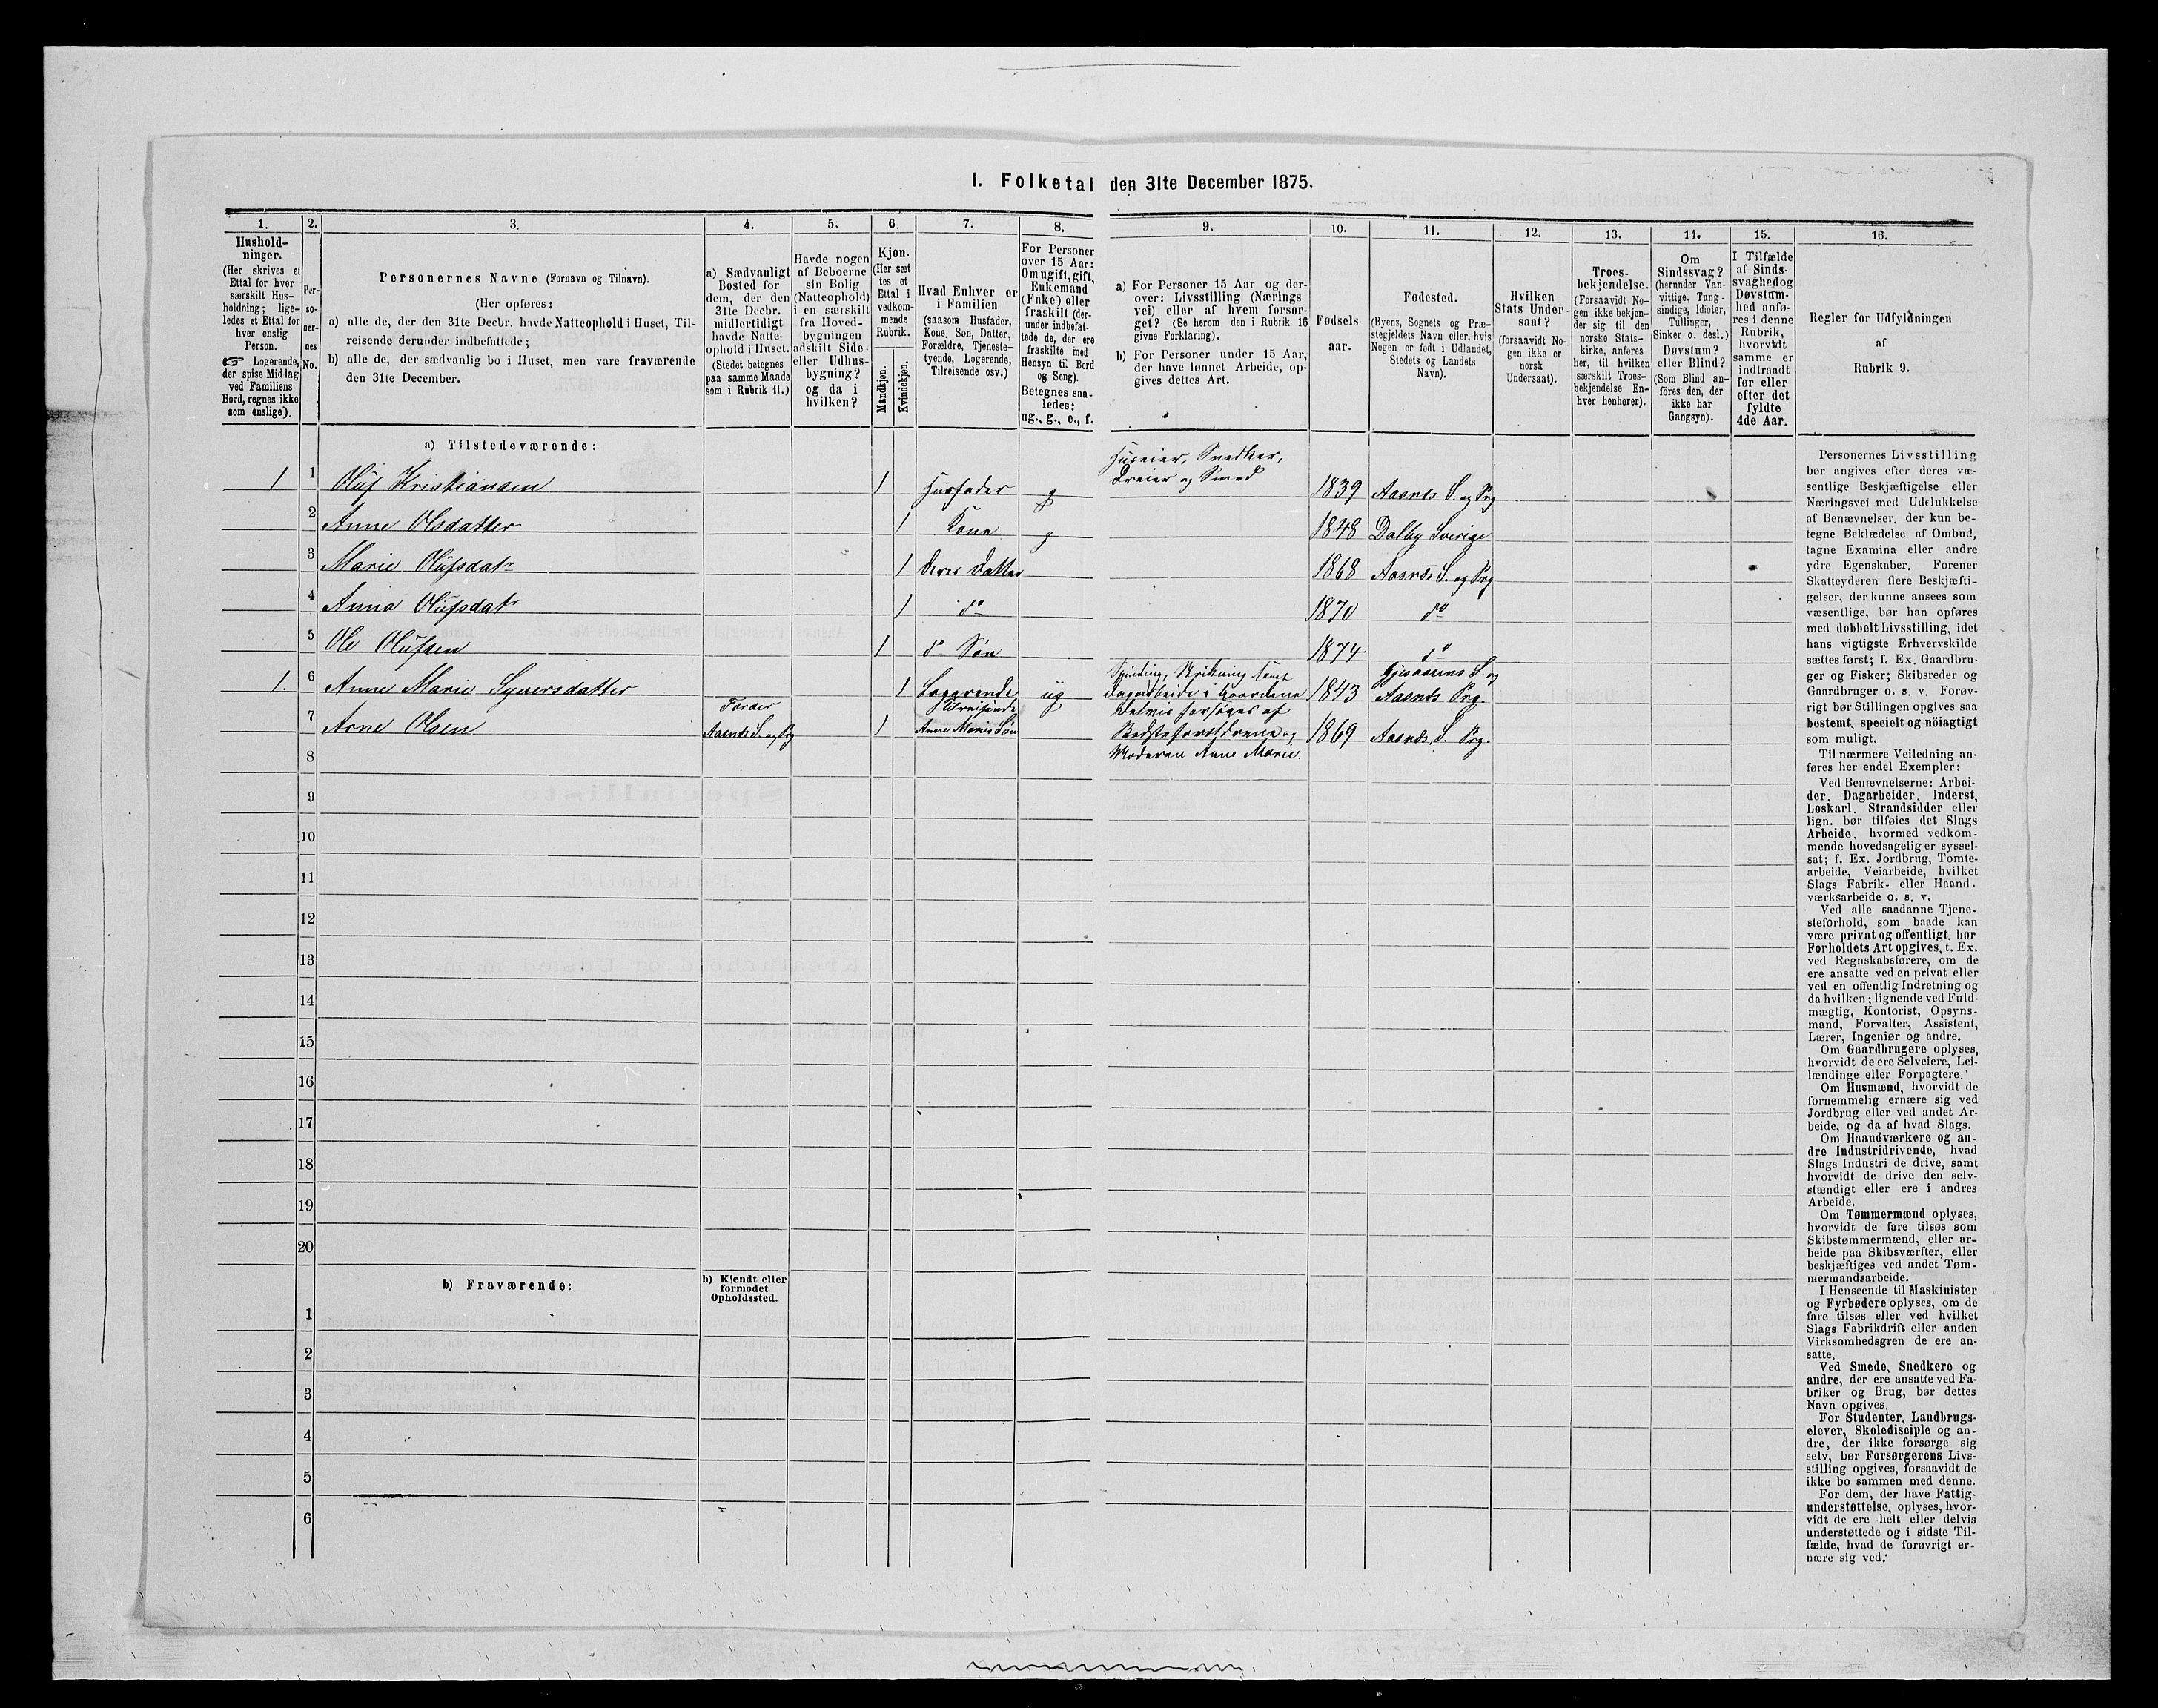 1. Folketal den 31te December 1875.
1.
Hushold-
ninger.
(Her skrives et
Ettal for hver
særskilt Hus-
holdning; lige-
ledes et Ettal for
hver enslig
Person.
☞ Logerende,
der spise Middag
ved Familiens
Bord, regnes ikke
som enslige).
2.
Per-
so-
ner-
nes
No.
3.
Personernes Navne (Fornavn og Tilnavn).
(Her opføres:
a) alle de, der den 31te Decbr. havde Natteophold i Huset, Til-
reisende derunder indbefattede;
b) alle de, der sædvanlig bo i Huset, men vare fraværende
den 31te December.
4.
a) Sædvanligt
Bosted for
dem, der den
31te Decbr.
midlertidigt
havde Natte-
ophold i Huset.
(Stedet betegnes
paa samme Maade
som i Rubrik 11.)
5.
Havde nogen
af Beboerne
sin Bolig
(Natteophold)
i en særskilt
fra Hoved-
bygningen
adskilt Side-
eller Udhus-
bygning?
og da i
hvilken?
6.
Kjøn.
(Her sæt
tes et
Ettal i
vedkom-
mende
Rubrik.
Mandkjøn.
Kvindekjøn.
7.
Hvad Enhver er
i Familien
(saasom Husfader,
Kone, Søn, Datter,
Forældre, Tjeneste-
tyende, Logerende,
Tilreisende osv.)
8.
For Personer
over 15 Aar:
Om ugift, gift,
Enkemand
(Enke) eller
fraskilt (der-
under indbefat-
tede de, der ere
fraskilte med
Hensyn til Bord
og Seng).
Betegnes saa-
ledes:
ug., g., e., f.
9.
a) For Personer 15 Aar og der-
over: Livsstilling (Nærings
vei) eller af hvem forsør-
get? (Se herom den i Rubrik 16
givne Forklaring).
b) For Personer under 15 Aar,
der have lønnet Arbeide, op-
gives dettes Art.
10.
Fødsels-
aar.
11.
Fødested.
(Byens, Sognets og Præ-
stegjeldets Navn eller, hvis
Nogen er født i Udlandet,
Stedets og Landets
Navn).
12.
Hvilken
Stats Under-
saat?
(forsaavidt No-
gen ikke er
norsk
Undersaat).
13.
Troes-
bekjendelse.
(Forsaavidt No-
gen ikke bekjen-
der sig til den
norske Stats-
kirke, anføres
her, til hvilken
særskilt Troes-
bekjendelse En-
hver henhører).
14.
Om
Sindssvag?
(herunder Van-
vittige, Tung-
sindige, Idioter,
Tullinger,
Sinker o. desl.)
Døvstum?
eller Blind?
(Som Blind an-
føres den, der
ikke har
Gangsyn).
15.
I Tilfælde
af Sinds-
svaghed og
Døvstum-
hed anfø-
res i denne
Rubrik,
hvorvidt
samme er
indtraadt
før eller
efter det
fyldte
4de Aar.
16.
Regler for Udfyldningen
af
Rubrik 9.
a) Tilstedeværende:
Huseier, Snedker,
Dreier og Smed
1 1 Oluf Kristiansen 1 Husfader g 1839 Aasnes S. og Prg
2 Anne Olsdatter 1 Kone g 1848 Dalby Sverige
3 Marie Olufsdatr 1 Deres Datter 1868 Aasnes S. og Prg
4 Anna Olufsdatr 1 do 1870 do
5 Ole Olufsen 1 do Søn 1874 do
Spinding, Strikning samt Gjesaasens S. og
1. 6 Anne Marie Syversdatter 1 Logerende ug Dagarbeide i Gaardene 1843 Aasnes Prg.
Tilreisende Delvis forsørges af
7 Arne Olsen Aasnes S. og Prg 1 Anne Maries Søn Bedsteforældrene og 1869 Aasnes S. Prg.
Moderen Anne Marie.
8
9
10
11
12
13
14
15
16
17
18
19
20
b) Fraværende:
b) Kjendt eller
formodet
Opholdssted.
1
2
3
4
5
6
Personernes Livsstilling
bør angives efter deres væ-
sentlige Beskjæftigelse eller
Næringsvei med Udelukkelse
af Benævnelser, der kun be-
tegne Beklædelse af Ombud,
tagne Examina eller andre
ydre Egenskaber. Forener
Skatteyderen flere Beskjæfti-
gelser, der kunne ansees som
væsentlige, bør han opføres
med dobbelt Livsstilling, idet
hans vigtigste Erhvervskilde
sættes først; f. Ex. Gaardbru-
ger og Fisker; Skibsreder og
Gaardbruger o. s. v. Forøv-
rigt bør Stillingen opgives saa
bestemt, specielt og nöiagtigt
som muligt.
Til nærmere Veiledning an-
føres her endel Exempler:
Ved Benævnelserne: Arbei-
der, Dagarbeider, Inderst,
Løskarl, Strandsidder eller
lign. bør tilføies det Slags
Arbeide, hvormed vedkom-
mende hovedsagelig er syssel-
sat; f. Ex. Jordbrug, Tomte-
arbeide, Veiarbeide, hvilket
Slags Fabrik- eller Haand-
værksarbeide o. s. v.
Ved alle saadanne Tjene-
steforhold, som baade kan
være privat og offentligt, bør
Forholdets Art opgives, t. Ex.
ved Regnskabsførere, om de
ere ansatte ved en privat eller
ved en offentlig Indretning og
da hvilken; lignende ved Fuld-
mægtig, Kontorist, Opsyns-
mand, Forvalter, Assistent,
Lærer, Ingeniør og andre.
Om Gaardbrugere oplyses,
hvorvidt de ere Selveiere, Lei-
lændinge eller Forpagtere.
Om Husmænd, hvorvidt de
fornemmelig ernære sig ved
Jordbrug eller ved andet Ar-
beide, og da af hvad Slags.
Om Haandværkere og an-
dre Industridrivende, hvad
Slags Industri de drive, samt
hvorvidt de drive den selv-
stændigt eller ere i andres
Arbeide.
Om Tømmermænd oplyses,
hvorvidt de fare tilsøs som
Skibstømmermænd, eller ar-
beide paa Skibsværfter, eller
beskjæftiges ved andet Tøm-
mermandsarbeide.
I Henseende til Maskinister
og Fyrbødere oplyses, om de
fare tilsøs eller ved hvilket
Slags Fabrikdrift eller anden
Virksomhedsgren de ere an-
satte.
Ved Smede, Snedkere og
andre, der ere ansatte ved Fa-
briker og Brug, bør dettes
Navn opgives.
For Studenter, Landbrugs-
elever, Skoledisciple og an-
dre, der ikke forsørge sig
selv, bør Forsørgerens Livs-
stilling opgives, forsaavidt de
ikke bo sammen med denne.
For dem, der have Fattig-
understøttelse, oplyses, hvor-
vidt de ere helt eller delvis
understøttede og i sidste Til-
fælde, hvad de forøvrigt er-
nære sig ved.